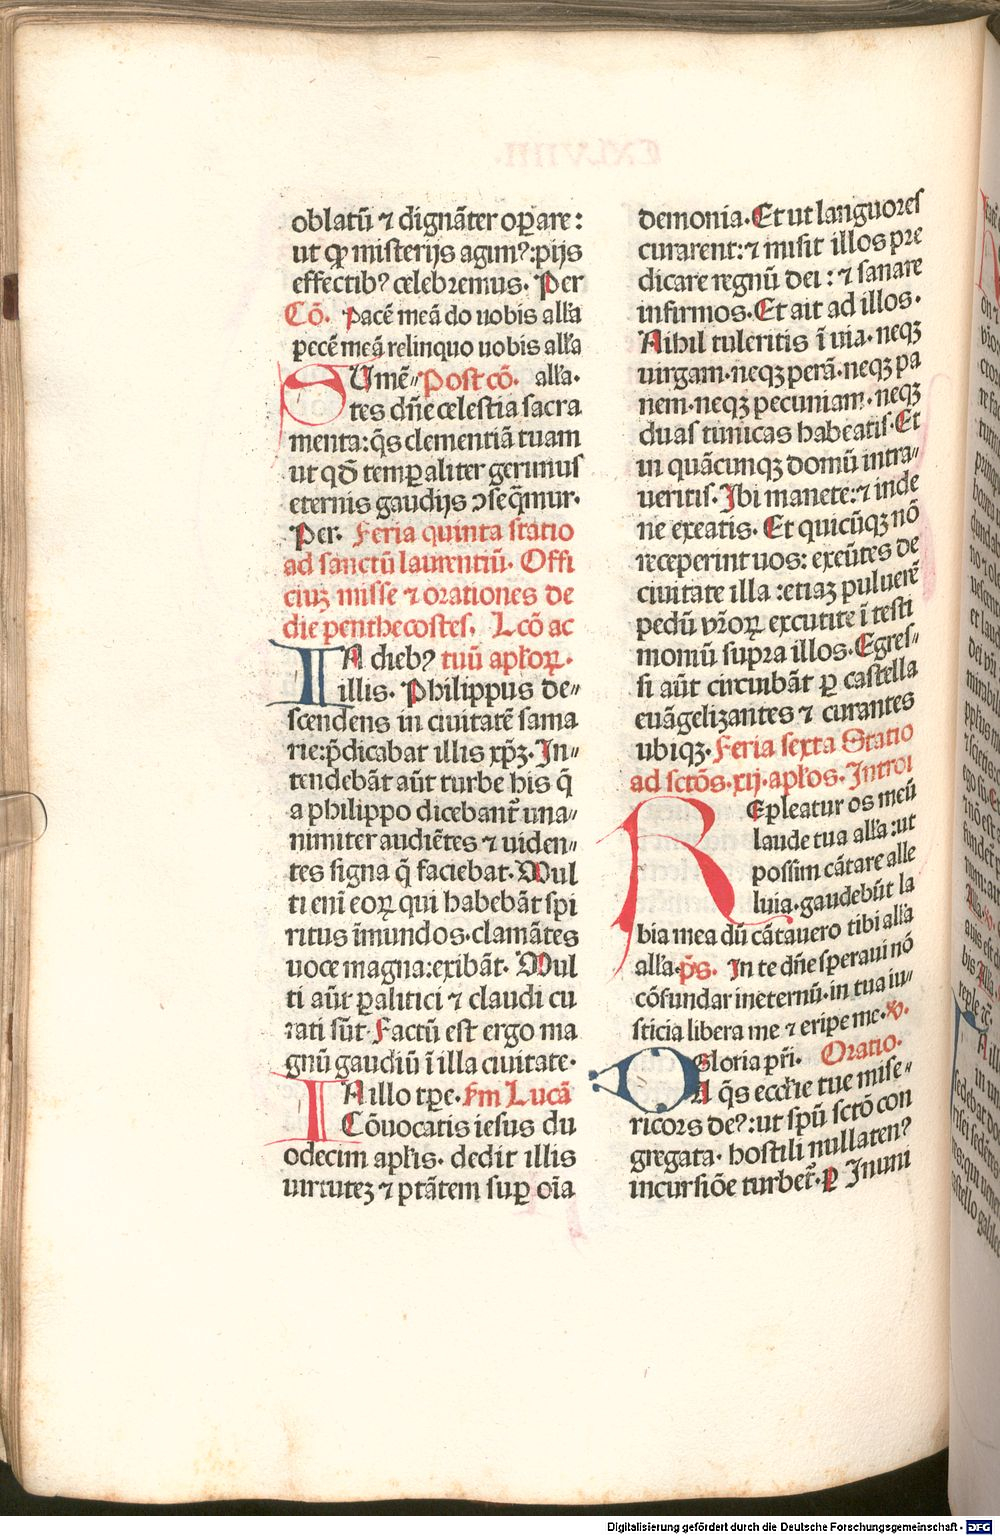 oblatū ⁊ dignāter oꝑare:
ut ꝙ misterijs agimꝰ: pijs
effectibꝰ celebremus. Per
Cō. Pacē meā do uobis all'a
pecē meā relinquo uobis all'a
SUmē〃 Post cō. all'a.
tes dñe celestia sacra
menta: q̄s clementiā tuam
ut qđ temꝑaliter gerimus
eternis gaudijs ↄseq̄mur.
Per. Feria quinta statio
ad sanctū laurentiū. Offi
ciuꝫ misse ⁊ orationes de
die penthecostes. Lcō ac
IN diebꝰ tuū apl'oꝝ.
illis. Philippus de〃
scendens in ciuitatē sama
rie: p̄dicabat illis xp̄ꝫ. In〃
tendebāt aūt turbe his q̄
a philippo dicebant᷑ una〃
nimiter audiētes ⁊ uiden〃
tes signa q̄ faciebat. Mul
ti enī eoꝝ qui habebāt spi
ritus īmundos. clamātes
uoce magna: exibāt. Mul
ti aūt ꝑalitici ⁊ claudi cu
rati sūt. Factū est ergo ma
gnū gaudiū ī illa ciuitate.
IN illo tꝑe. s'm Lucā
Cōuocatis iesus du
odecim apl'is. dedit illis
uirtuteꝫ ⁊ ptātem suꝑ oīa
demonia. Et ut languores
curarent: ⁊ misit illos pre
dicare regnū dei: ⁊ sanare
infirmos. Et ait ad illos.
Nihil tuleritis ī uia. neqꝫ
uirgam. neqꝫ perā. neqꝫ pa
nem. neqꝫ pecuniam. neqꝫ
duas tunicas habeatis. Et
in quācunqꝫ domū intra〃
ueritis. Ibi manete: ⁊ inde
ne exeatis. Et quicūqꝫ nō
receperint uos: exeūtes de
ciuitate illa: etiaꝫ puluerē
pedū vr̄oꝝ excutite ī testi
monium supra illos. Egres〃
si aūt circuibāt ꝑ castella
euāgelizantes ⁊ curantes
ubiqꝫ. Feria sexta Statio
ad sctōs. xij. apl'os. Introi
REpleatur os meū
laude tua all'a: ut
possim cātare alle
luia. gaudebūt la
bia mea dū cātauero tibi all'a
all'a. p̄s. In te dñe speraui nō
cōfundar in eternū. in tua iu〃
sticia libera me ⁊ eripe me. ꝟ.
Gloria pr̄i. Oratio.
DA q̄s eccl'ie tue mise〃
ricors deꝰ: ut spū sctō con
gregata. hostili nullatenꝰ
incursiōe turbet᷑. ꝑ Inuni
Digitalisierung gefördert durch die Deutsche Forschungsgemeinschaft - DFG